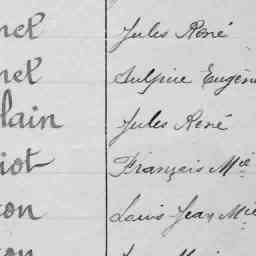 net Jules René
net Sulpice Eugène
lain Jules René
iot François Mie
on Louis Jean Mie
on